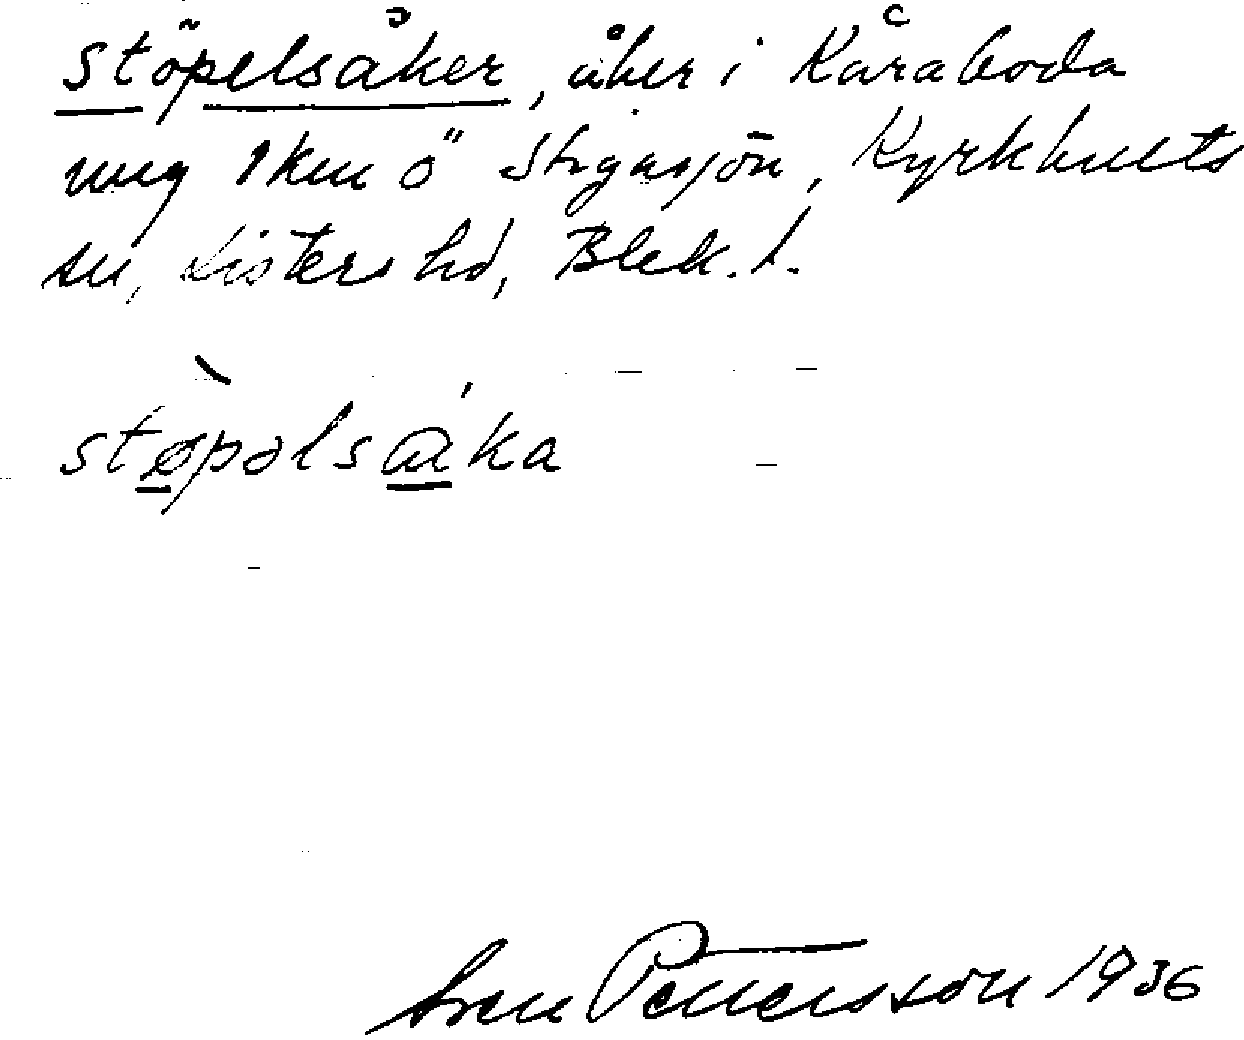 Stöpelsåker, åker i Kåraboda
ung 1 km ö Stegasjön, Kyrkhults
sn, Listers hd, Blek. l.
støpəlsåka
Sven Pettersson 1936